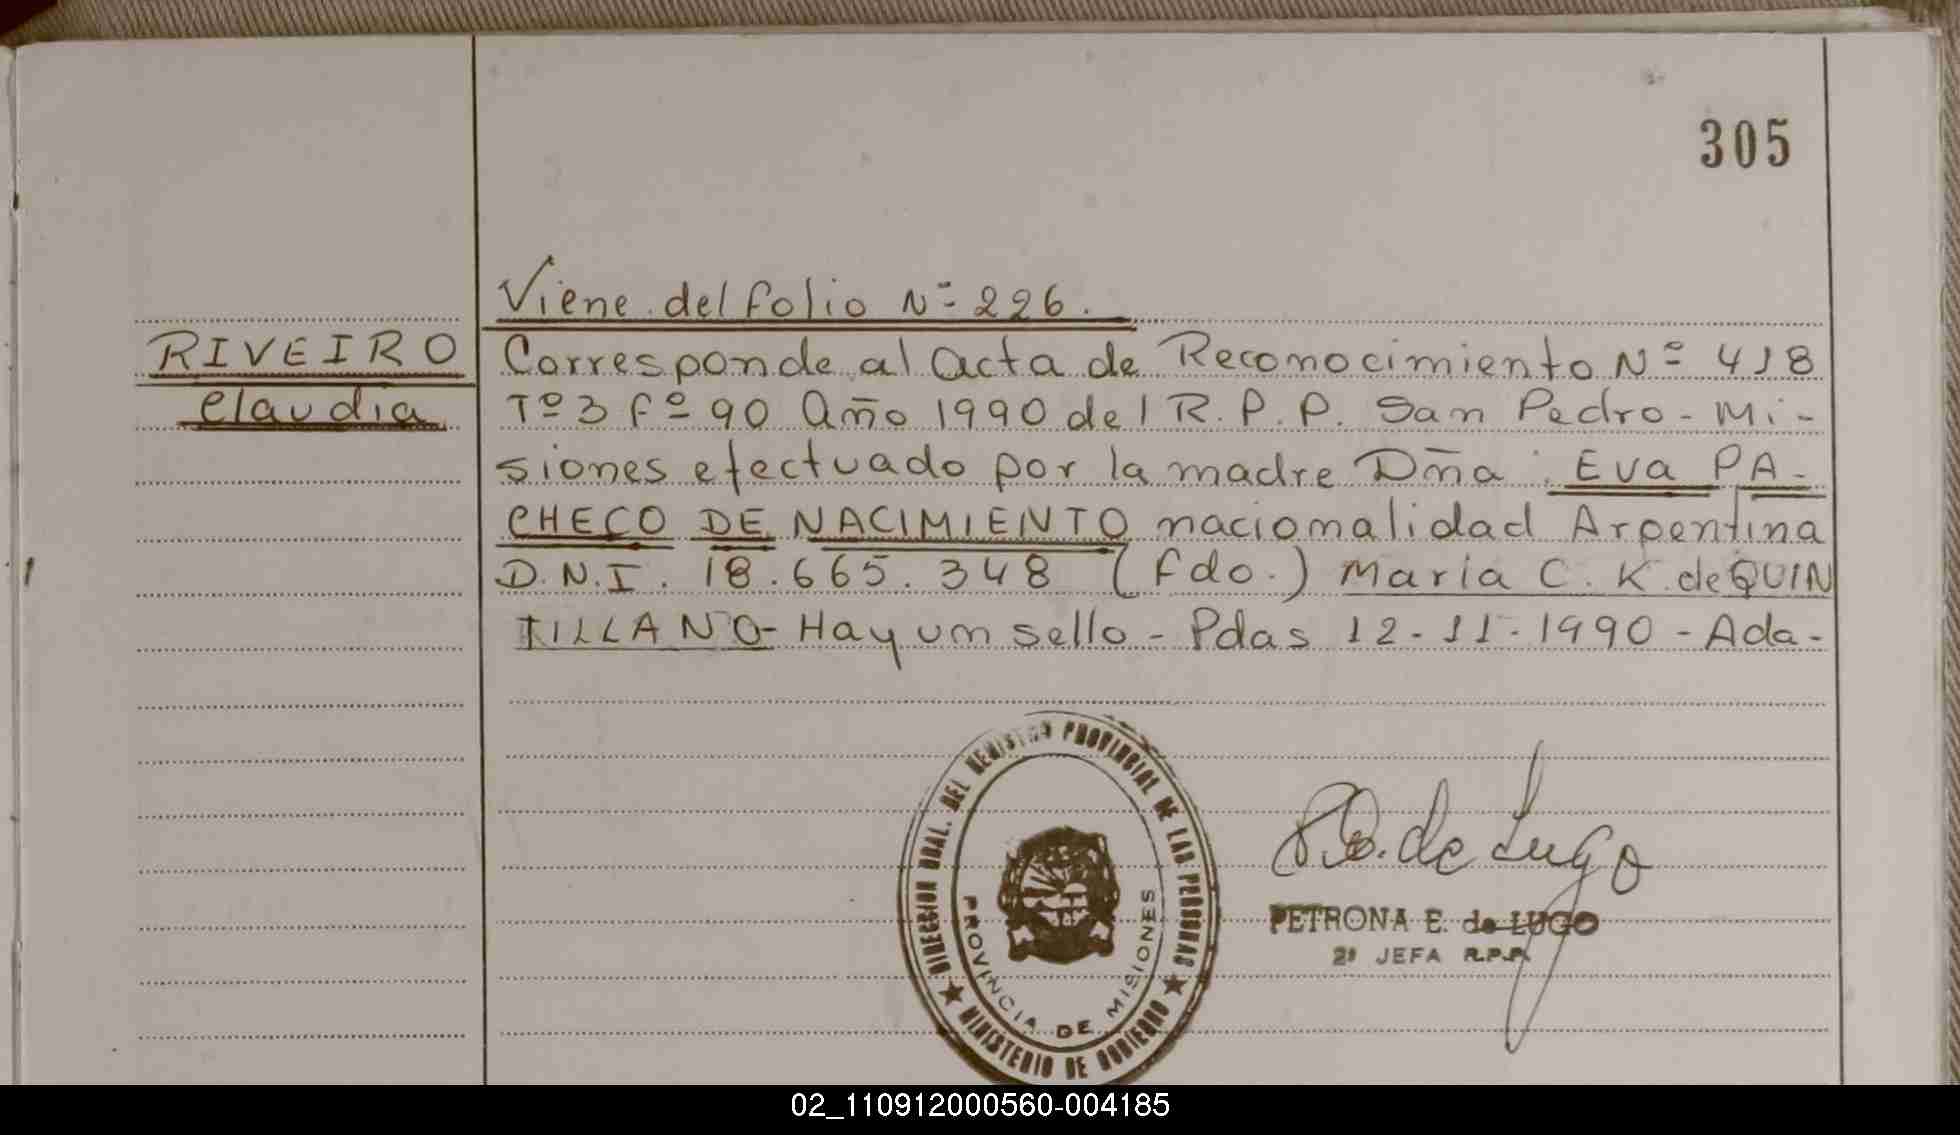 305
Viene del folio Nº 226.
RIVEIRO
Claudia
Corresponde al Acta de Reconocimiento Nº 418
Tº 3 Fº 90 Año 1990 del R.P.P. San Pedro - Mi-
siones efectuado por la madre Dña: Eva PA-
CHECO DE NACIMIENTO nacionalidad Argentina
D.N.I. 18.665.348 (fdo.) Maria C. K. de QUIN
TILLANO - Hay um sello - Pdas 12-11-1990 - Ada-
DIRECCION GRAL. DEL REGISTRO PROVINCIAL DE LAS PERSONAS
PROVINCIA DE MISIONES
★ MINISTERIO DE GOBIERNO ★
de Lugo
PETRONA E. de LUGO
2ª JEFA R.P.P.
02_110912000560-004185